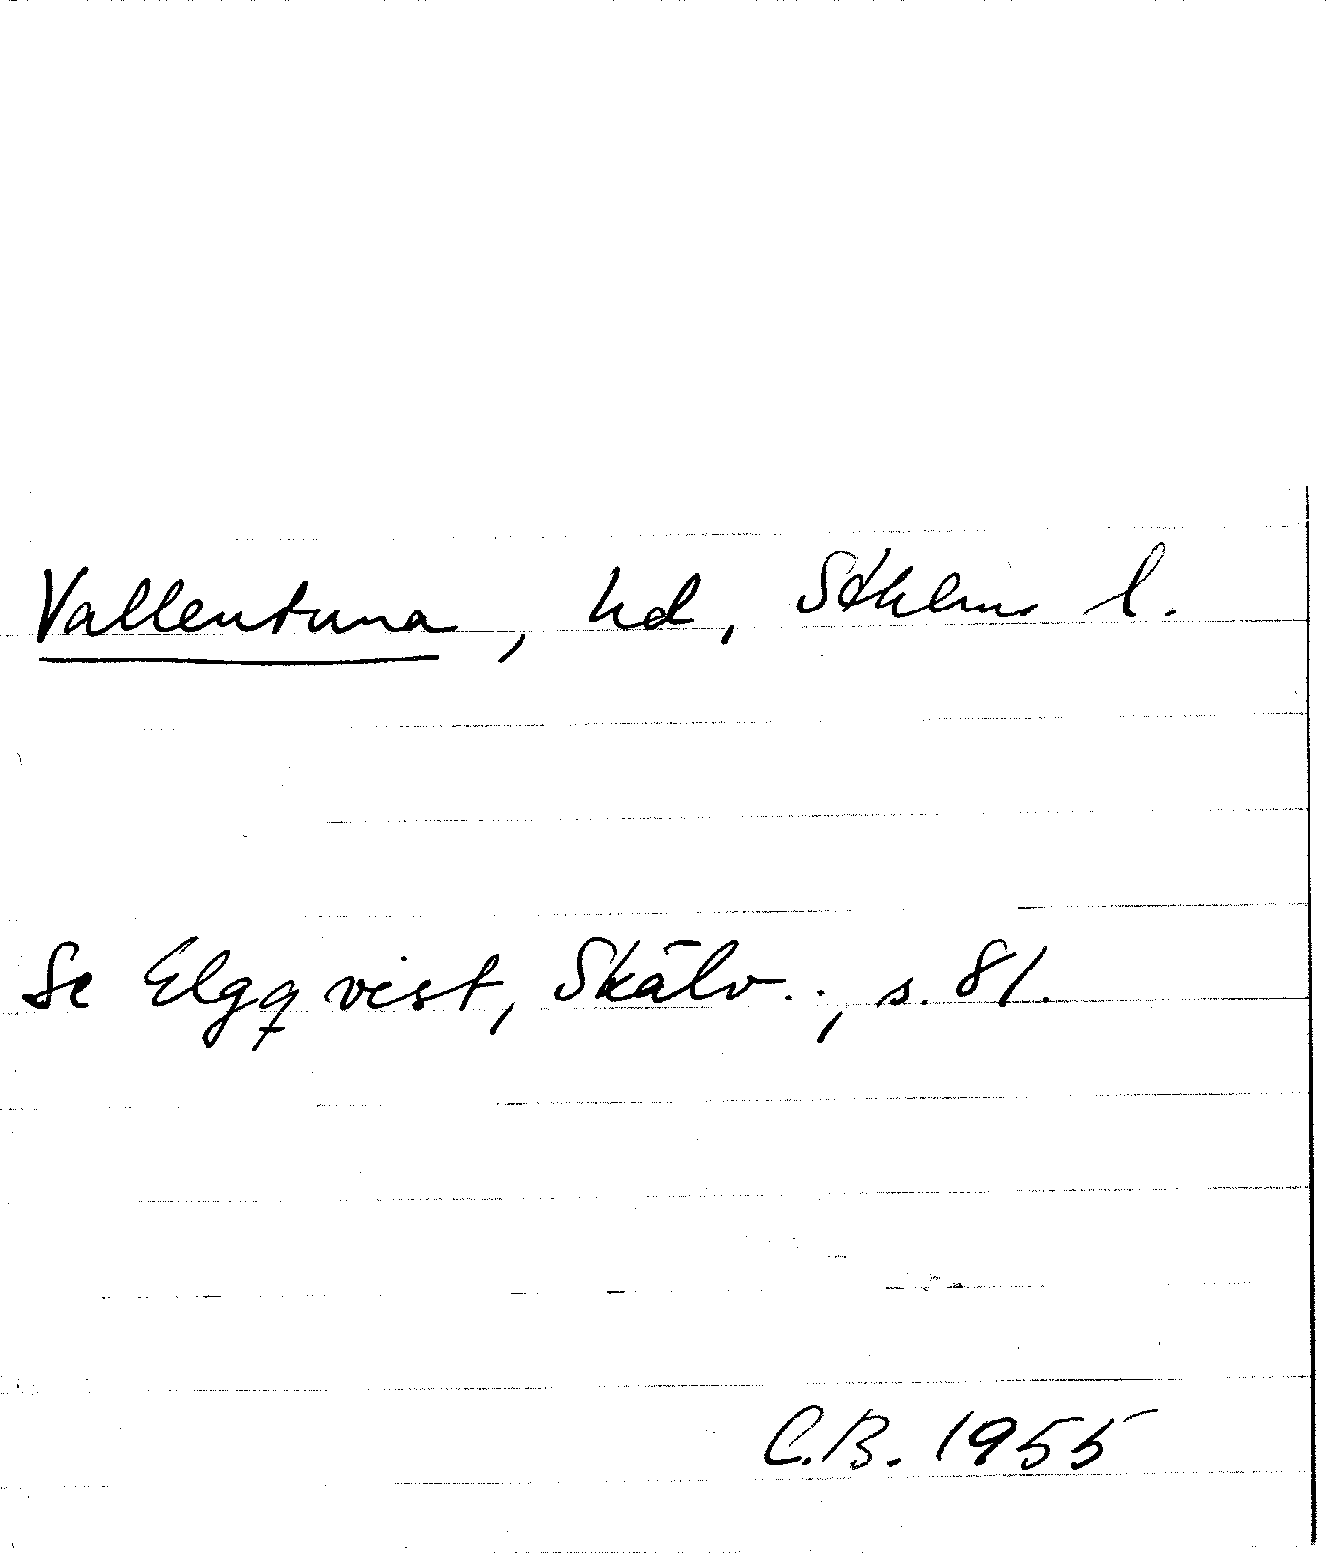 Vallentuna, hd, Sthlms l.
Se Elgqvist, Skälv.., s. 81.
C.B. 1955